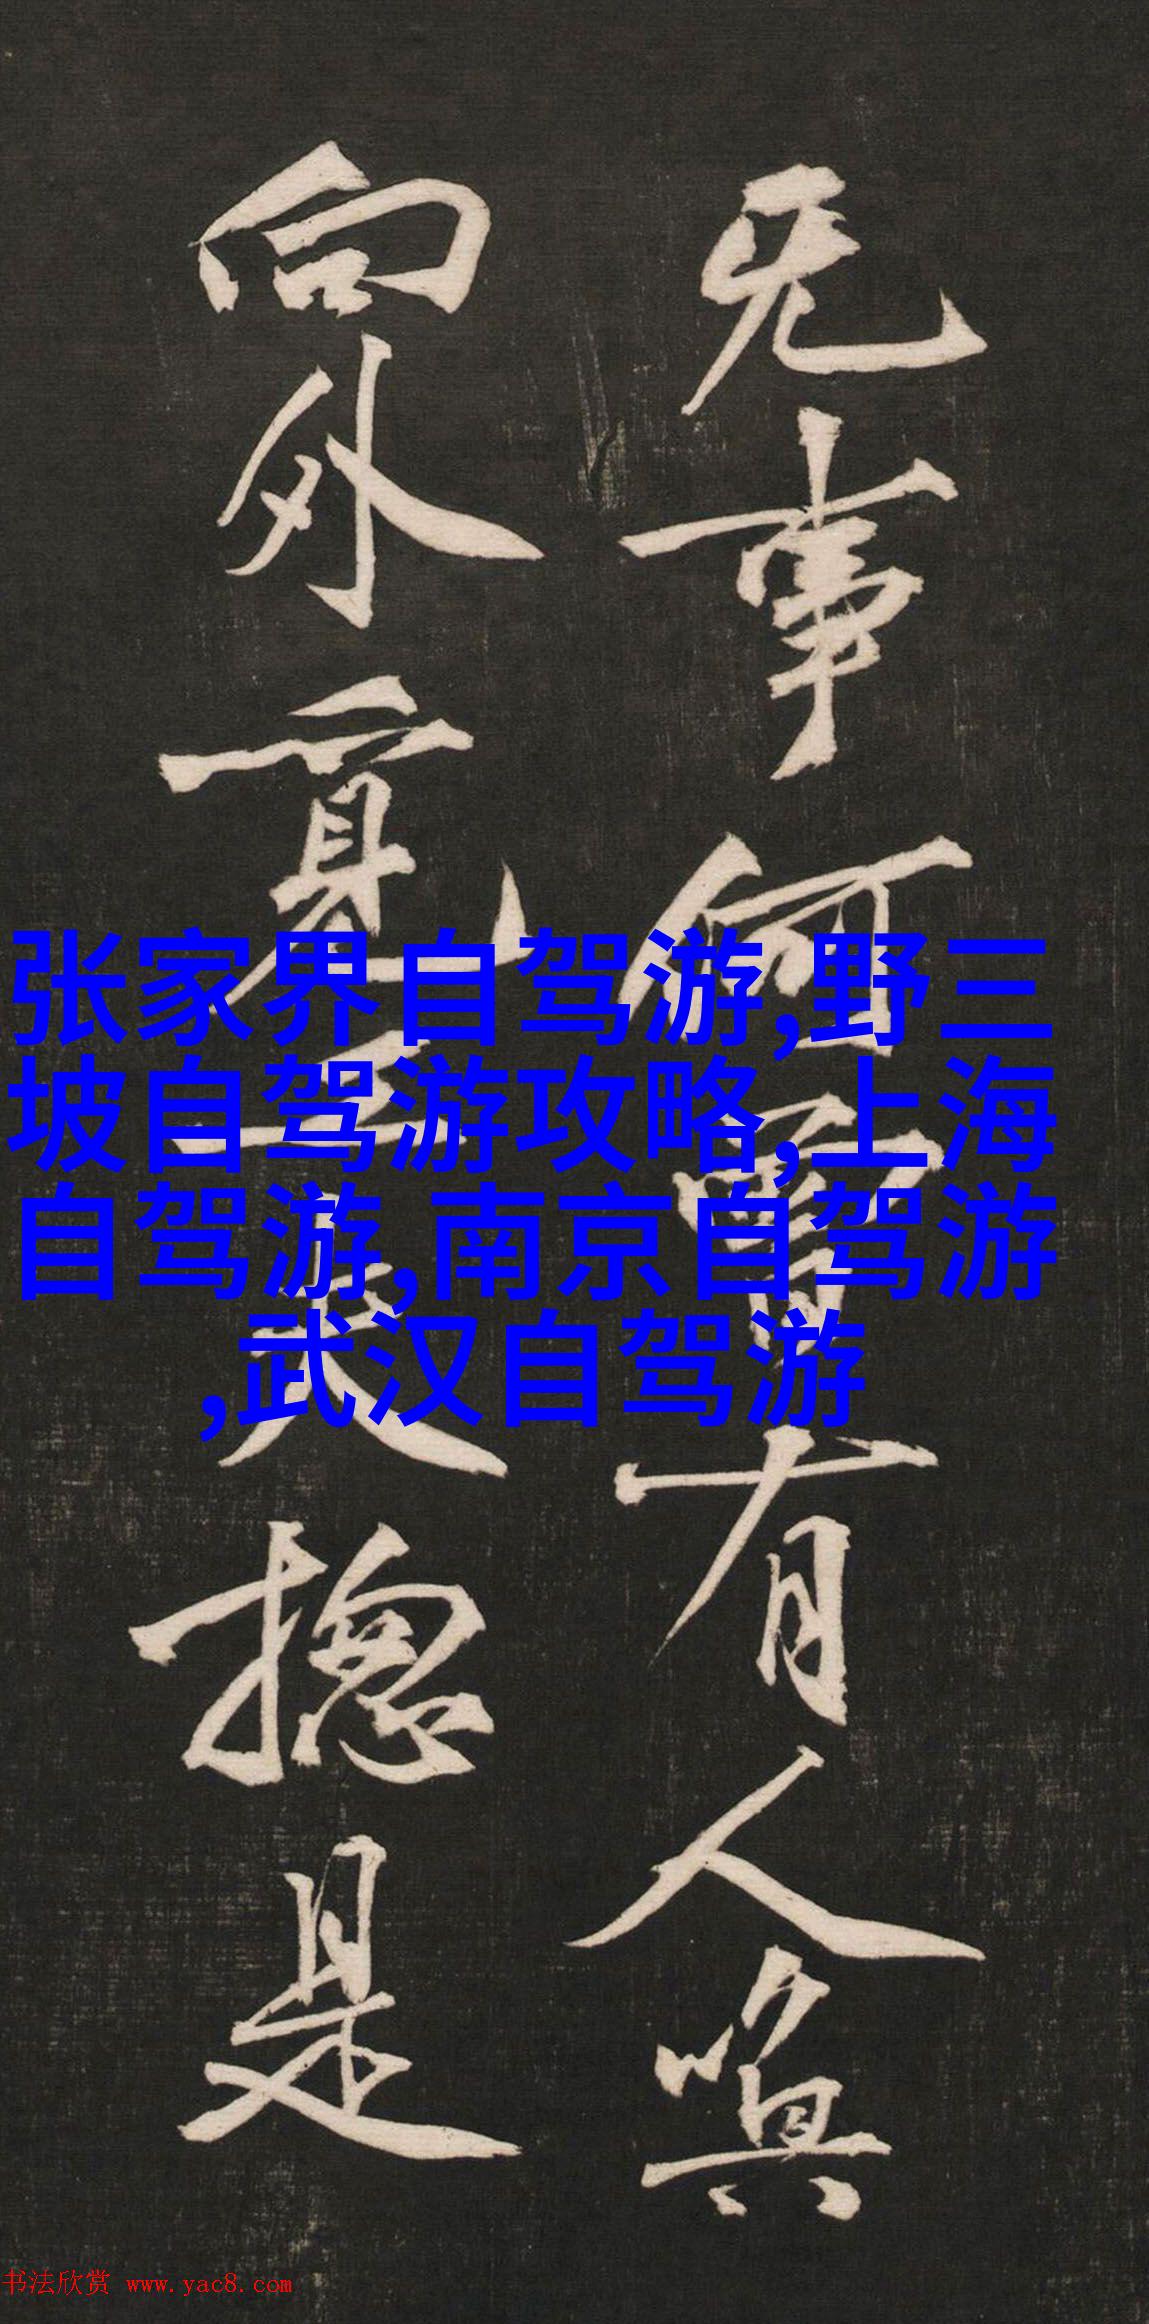 无事何有人喚
向外覓工夫揔是
张家界自驾游,野三
坡自驾游攻略,上海
自驾游,南京自驾游
,武汉自驾游
书法欣赏 www.yac8.com